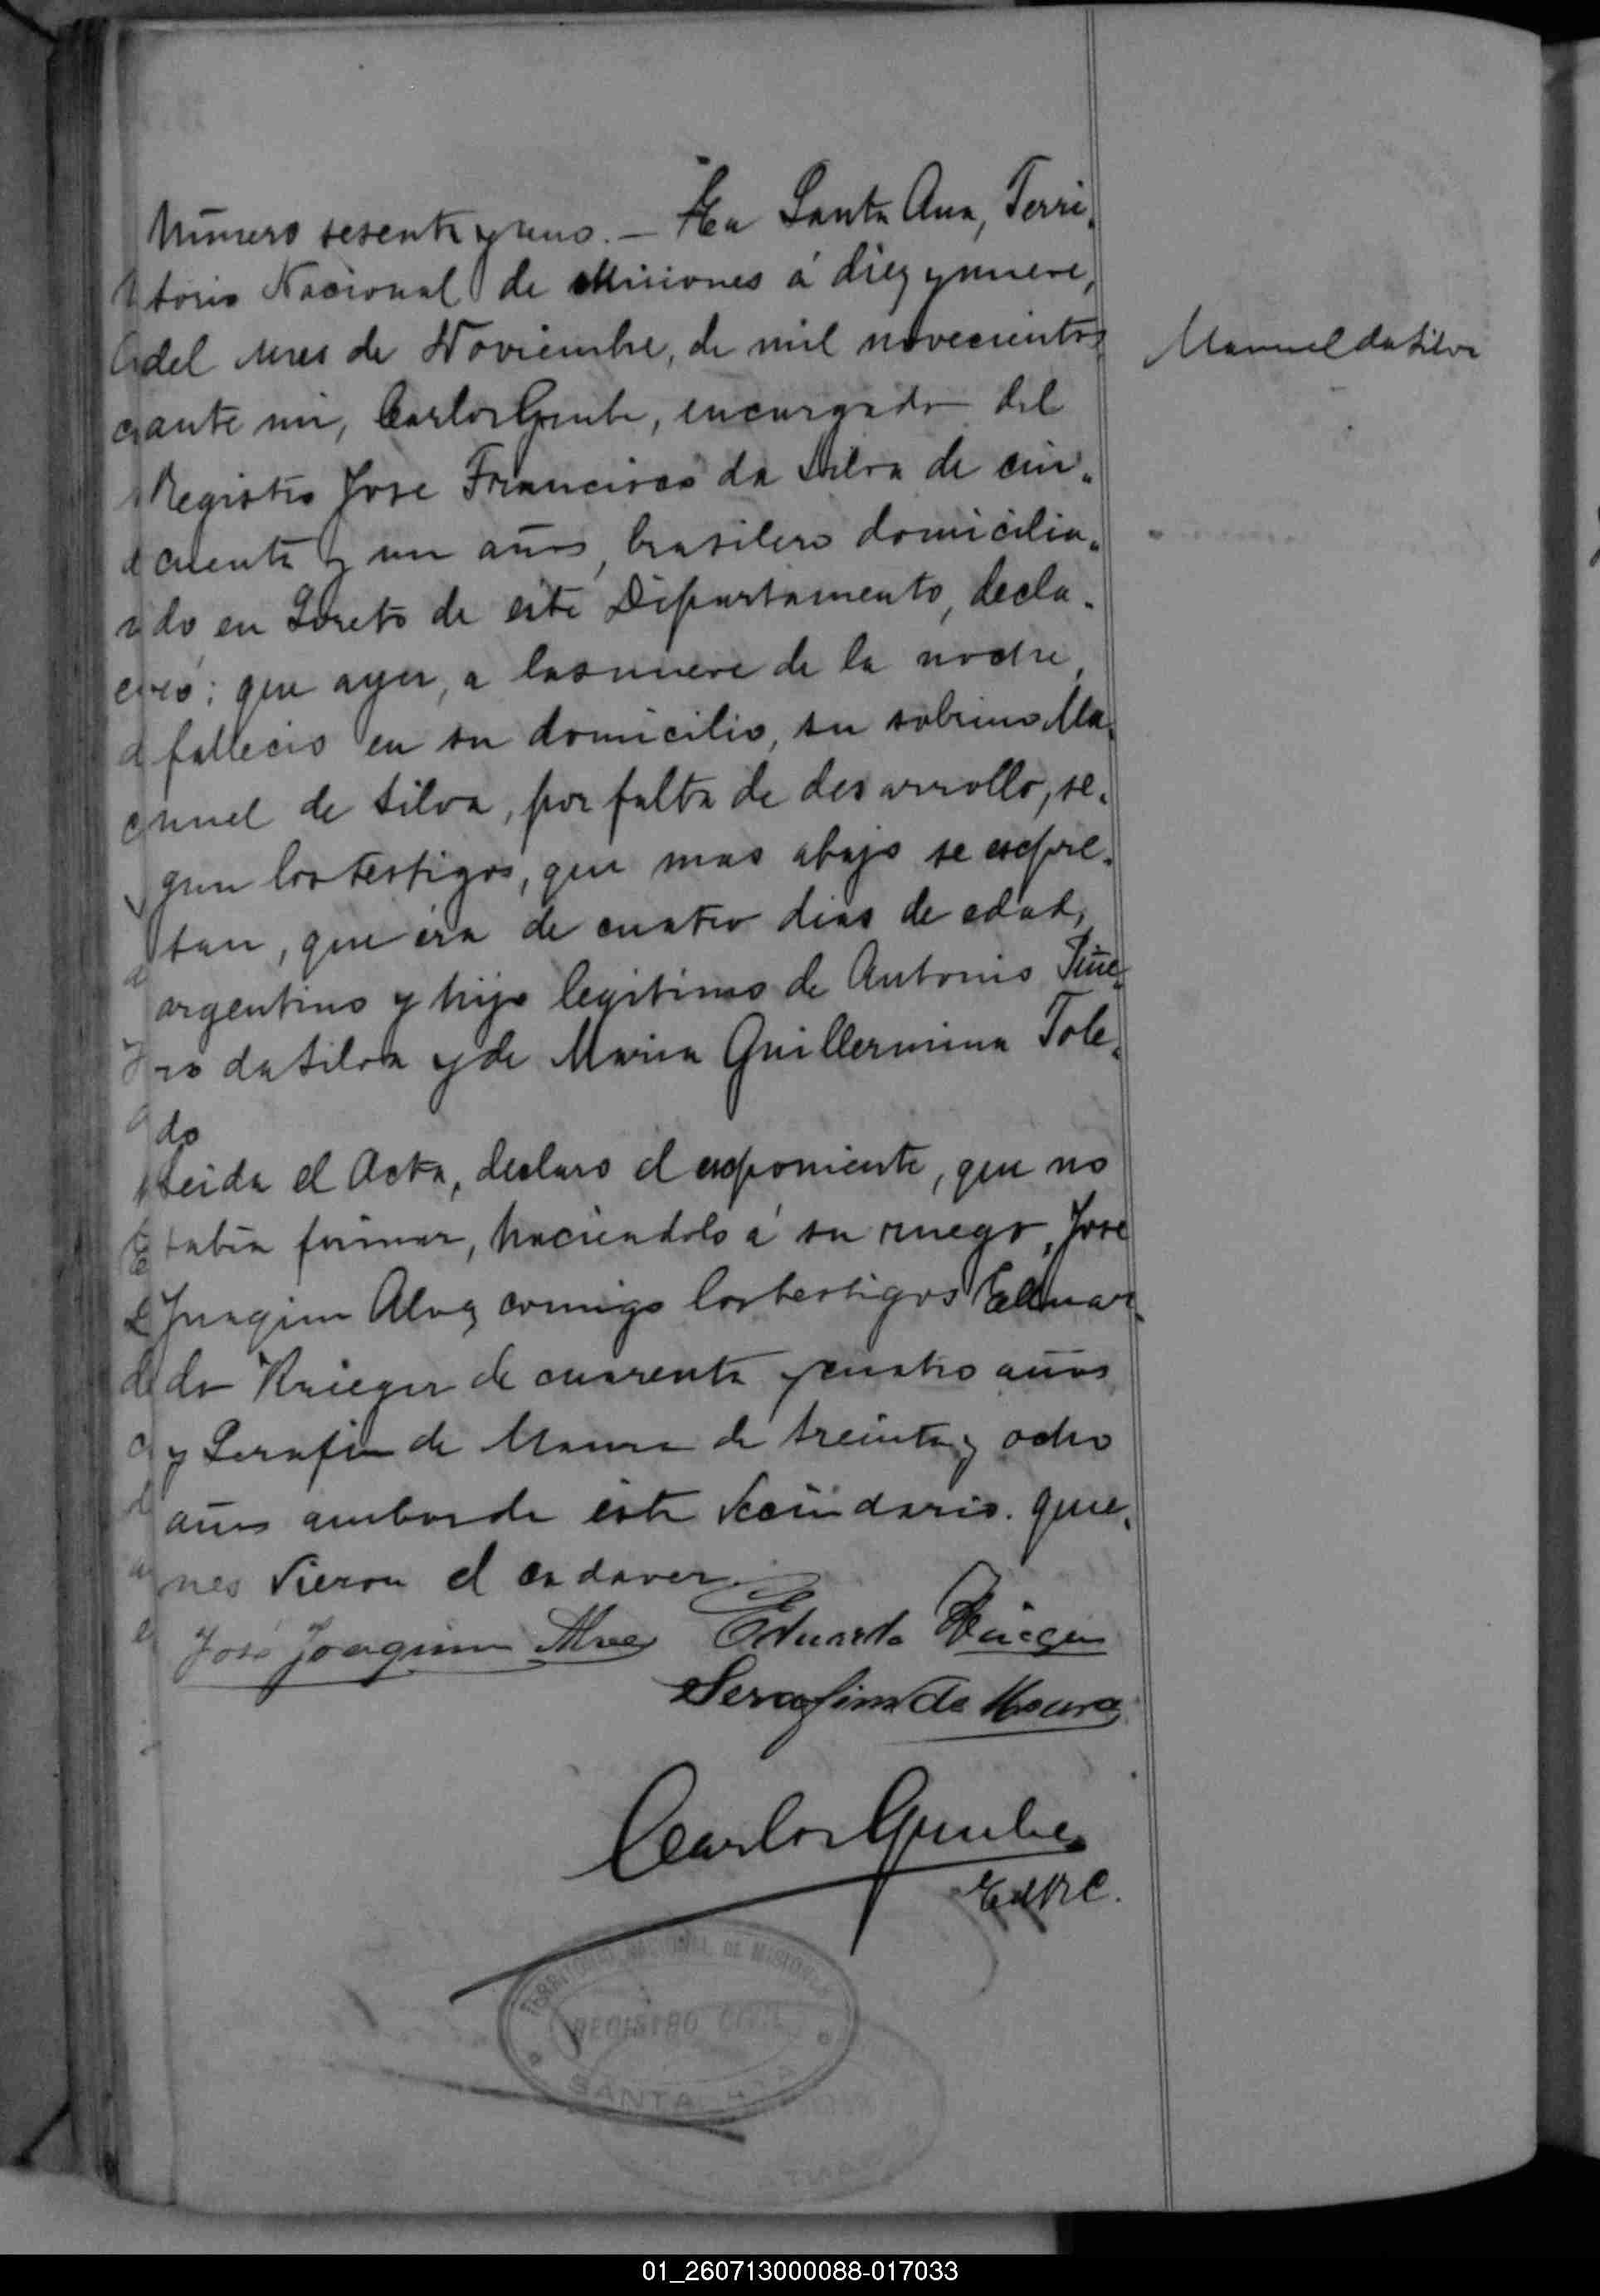 Número sesenta y uno. — En Santa Ana, Terri-
torio Nacional de Misiones á diez y nueve,
del mes de Noviembre, de mil novecientos
ante mi, Carlos , encargado del
Registro Jose Francisco da Silva de cin-
cuenta y un años, brasilero domicilia-
do en Loreto de este Departamento, decla-
ró: que ayer, a las nueve de la noche,
fallecio en su domicilio, su sobrino Ma-
nuel de Silva, por falta de desarrollo, se-
gun los testigos, que mas abajo se expre-
san, que éra de cuatro dias de edad,
argentino y hijo legitimo de Antonio Piñe-
ro da Silva y de Maria Guillermina Tole-
do
Leida el Acta, declaro el exponiente, que no
sabia firmar, haciendolo á su ruego, Jose
Juaquim Alvez comigo los testigos Eduar-
do Krieger de cuarenta y cuatro años
y Serafin de Moura de treinta y ocho
años ambos de este vecindario. quie-
nes vieron el cadaver.
José Joaquim Alves Eduardo Krieger
Serafim de Moura
Carlos
E del R C.
Manuel da Silva
TERRITORIO NACIONAL DE MISIONES
REGISTRO CIVIL
SANTA ANA
01_260713000088-017033